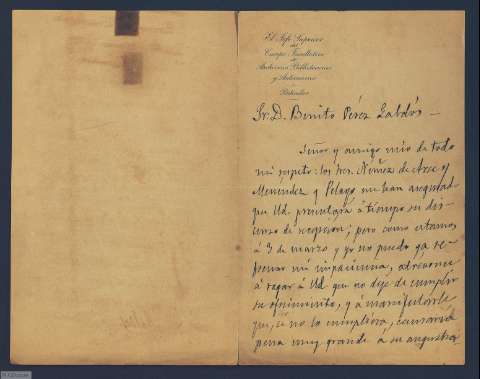 El Jefe Superior
del
Cuerpo Facultativo
de
Archiveros Bibliotecarios
y Anticuarios
Particular
Sr. D. Benito Pérez Galdós –
Señor y amigo mio de todo
mi respeto: los Sres. Nuñez de Arce y
Menéndez y Pelayo me han asegurado
que Ud. presentará á tiempo su dis-
curso de recepcion; pero como estamos
á 3 de marzo y yo no puedo ya re-
frenar mi impaciencia, atrévome
á rogar á Ud que no deje de cumplir
su ofrecimiento, y á manifestarle
que, si no lo cumpliera, causaria
pena muy grande á su